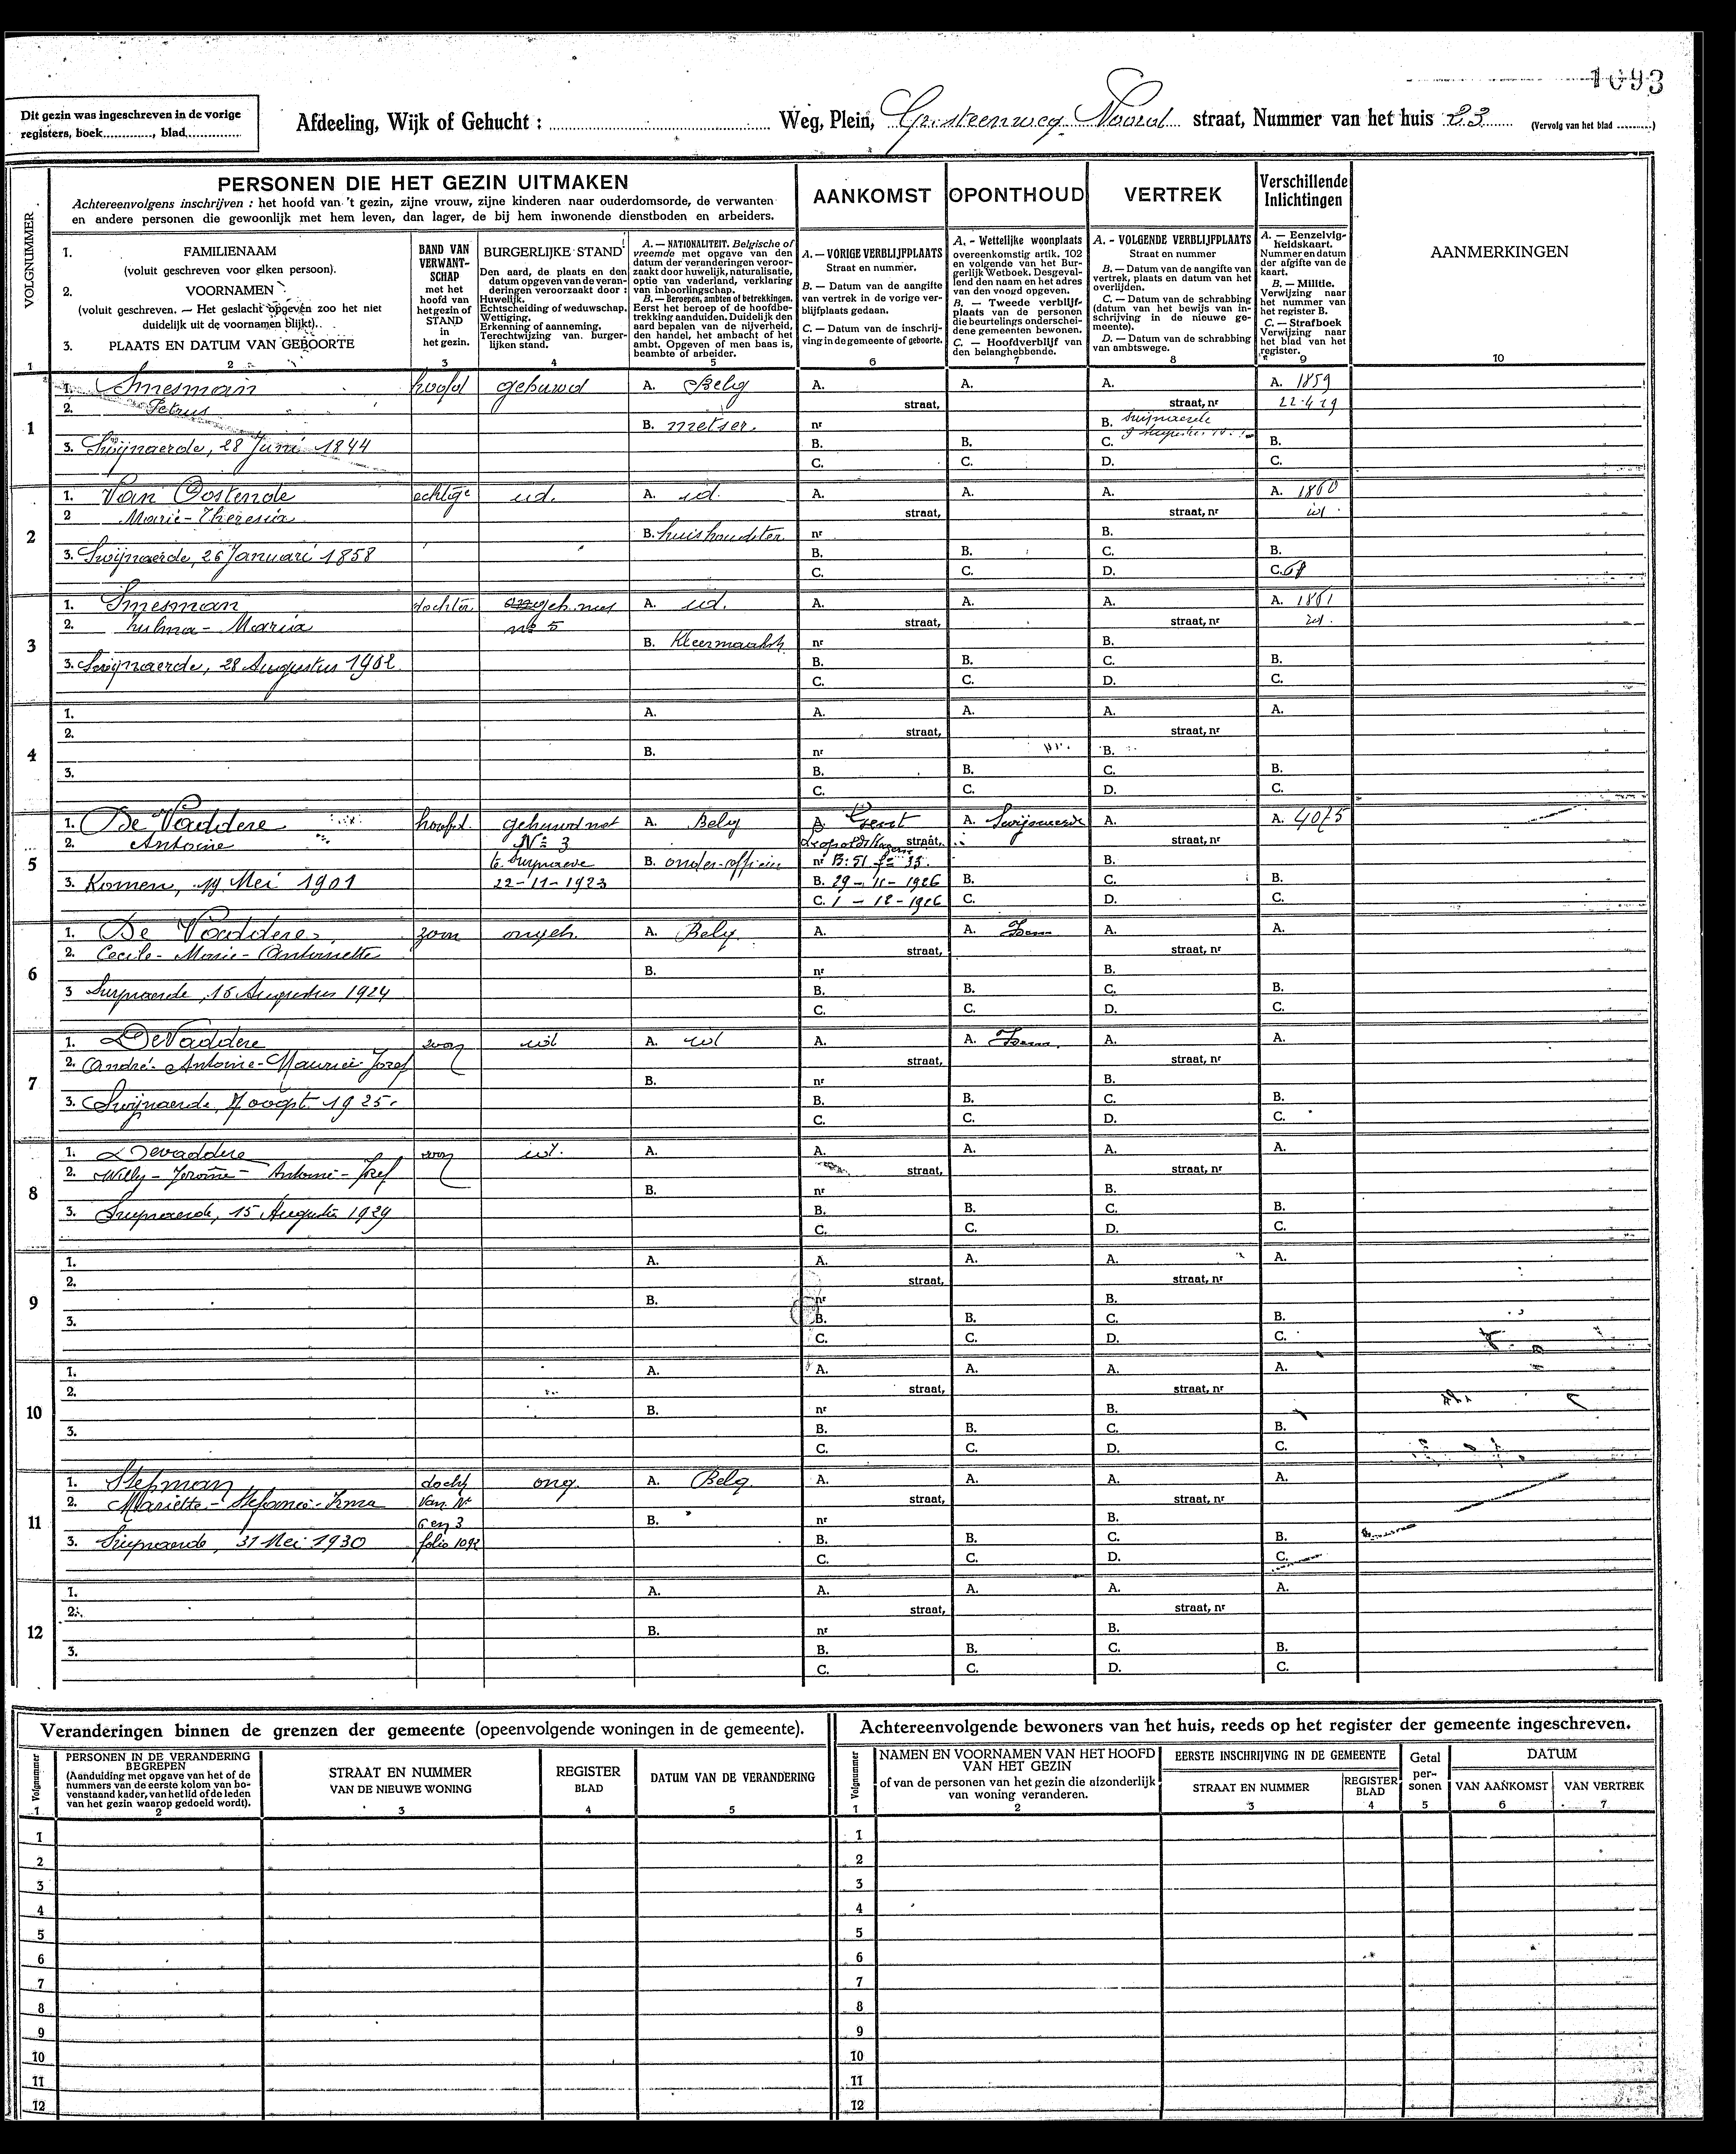 1093
Dit gezin was ingeschreven in de vorige
registers, boek............, blad............
Afdeeling, Wijk of Gehucht : ............ Weg, Plein, Gr. steenweg Noord straat, Nummer van het huis 23 (Vervolg van het blad ..........)
VOLGNUMMER
PERSONEN DIE HET GEZIN UITMAKEN
Achtereenvolgens inschrijven : het hoofd van 't gezin, zijne vrouw, zijne kinderen naar ouderdomsorde, de verwanten
en andere personen die gewoonlijk met hem leven, dan lager, de bij hem inwonende dienstboden en arbeiders.
AANKOMST
OPONTHOUD
VERTREK
Verschillende
Inlichtingen
1. FAMILIENAAM
(voluit geschreven voor elken persoon).
2. VOORNAMEN
(voluit geschreven. — Het geslacht opgeven zoo het niet
duidelijk uit de voornamen blijkt).
3. PLAATS EN DATUM VAN GEBOORTE
BAND VAN
VERWANT-
SCHAP
met het
hoofd van
het gezin of
STAND
in het gezin.
BURGERLIJKE STAND
Den aard, de plaats en den
datum opgeven van de veran-
deringen veroorzaakt door :
Huwelijk.
Echtscheiding of weduwschap.
Wettiging.
Erkenning of aanneming.
Terechtwijzing van burger-
lijken stand.
A. — NATIONALITEIT. Belgische of
vreemde met opgave van den
datum der veranderingen veroor-
zaakt door huwelijk, naturalisatie,
optie van vaderland, verklaring
van inboorlingschap.
B. — Beroepen, ambten of betrekkingen.
Eerst het beroep of de hoofdbe-
trekking aanduiden. Duidelijk den
aard bepalen van de nijverheid,
den handel, het ambacht of het
ambt. Opgeven of men baas is,
beambte of arbeider.
A. — VORIGE VERBLIJFPLAATS
Straat en nummer.
B. — Datum van de aangifte
van vertrek in de vorige ver-
blijfplaats gedaan.
C. — Datum van de inschrij-
ving in de gemeente of geboorte.
A. - Wettelijke woonplaats
overeenkomstig artik. 102
en volgende van het Bur-
gerlijk Wetboek. Desgeval-
lend den naam en het adres
van den voogd opgeven.
B. — Tweede verblijf-
plaats van de personen
die beurtelings onderschei-
dene gemeenten bewonen.
C. — Hoofdverblijf van
den belanghebbende.
A. - VOLGENDE VERBLIJFPLAATS
Straat en nummer
B. — Datum van de aangifte van
vertrek, plaats en datum van het
overlijden.
C. — Datum van de schrabbing
(datum van het bewijs van in-
schrijving in de nieuwe ge-
meente).
D. — Datum van de schrabbing
van ambtswege.
A. — Eenzelvig-
heidskaart.
Nummer en datum
der afgifte van de
kaart.
B. — Militie.
Verwijzing naar
het nummer van
het register B.
C. — Strafboek
Verwijzing naar
het blad van het
register.
AANMERKINGEN
1 2 3 4 5 6 7 8 9 10
1
1. Smesman hoofd gehuwd A. Belg A. A. A. A. 1859
2. Petrus straat, straat, nr 22-4-29
B. metser. nr B. Swijnaerde
3. Swijnaerde, 28 Juni 1844 B. B. C. B.
C. C. D. C.
2
1. Van Oostende echtge id. A. id. A. A. A. A. 1860
2 Marie-Theresia straat, straat, nr id.
B. huishoudster nr B.
3. Swijnaerde, 26 Januari 1858 B. B. C. B.
C. C. D. C. 68
3
1. Smesman dochter geh. met A. id. A. A. A. A. 1861
2. Zulma - Maria n° 5 straat, straat, nr id.
B. Kleermaakst. nr B.
3. Swijnaerde, 28 Augustus 1902 B. B. C. B.
C. C. D. C.
4
1. A. A. A. A. A.
2. straat, straat, nr
B. nr B.
3. B. B. C. B.
C. C. D. C.
5
1. De Vaddere hoofd. gehuwd met A. Belg A. Gent A. Swijnaerde A. A. 4075
2. Antoine N° 3 straat, straat, nr
te Swijnaerde B. onder-officier nr B: 51 f° 33. B.
3. Komen, 19 Mei 1901 22-11-1923 B. 29-11-1926 B. C. B.
C. 1-12-1926 C. D. C.
6
1. De Vaddere zoon ongeh. A. Belg. A. A. A. A.
2. Cecile-Marie-Antoinette straat, straat, nr
B. nr B.
3 Swijnaerde, 15 Augustus 1924 B. B. C. B.
C. C. D. C.
7
1. De Vaddere zoon id A. id A. A. A. A.
2. André-Antoine-Maurice Jozef straat, straat, nr
B. nr B.
3. Swijnaerde, 7 oogst 1925. B. B. C. B.
C. C. D. C.
8
1. Devaddere zoon id. A. A. A. A. A.
2. Willy-Jerome-Antoine-Jozef straat, straat, nr
B. nr B.
3. Swijnaerde, 15 Augustus 1929 B. B. C. B.
C. C. D. C.
9
1. A. A. A. A. A.
2. straat, straat, nr
B. nr B.
3. B. B. C. B.
C. C. D. C.
10
1. A. A. A. A. A.
2. straat, straat, nr
B. nr B.
3. B. B. C. B.
C. C. D. C.
11
1. Stefman docht ong. A. Belg. A. A. A. A.
2. Mariette-Stefanie-Irma van N° straat, straat, nr
6 en 3 B. nr B.
3. Swijnaerde, 31 Mei 1930 folio 1092 B. B. C. B.
C. C. D. C.
12
1. A. A. A. A. A.
2. straat, straat, nr
B. nr B.
3. B. B. C. B.
C. C. D. C.
Veranderingen binnen de grenzen der gemeente (opeenvolgende woningen in de gemeente).
Volgnummer
PERSONEN IN DE VERANDERING
BEGREPEN
(Aanduiding met opgave van het of de
nummers van de eerste kolom van bo-
venstaand kader, van het lid of de leden
van het gezin waarop gedoeld wordt).
STRAAT EN NUMMER
VAN DE NIEUWE WONING
REGISTER
BLAD
DATUM VAN DE VERANDERING
1 2 3 4 5
1
2
3
4
5
6
7
8
9
10
11
12
Achtereenvolgende bewoners van het huis, reeds op het register der gemeente ingeschreven.
Volgnummer
NAMEN EN VOORNAMEN VAN HET HOOFD
VAN HET GEZIN
of van de personen van het gezin die afzonderlijk
van woning veranderen.
EERSTE INSCHRIJVING IN DE GEMEENTE
STRAAT EN NUMMER
REGISTER
BLAD
Getal
per-
sonen
DATUM
VAN AANKOMST
VAN VERTREK
1 2 3 4 5 6 7
1
2
3
4
5
6
7
8
9
10
11
12